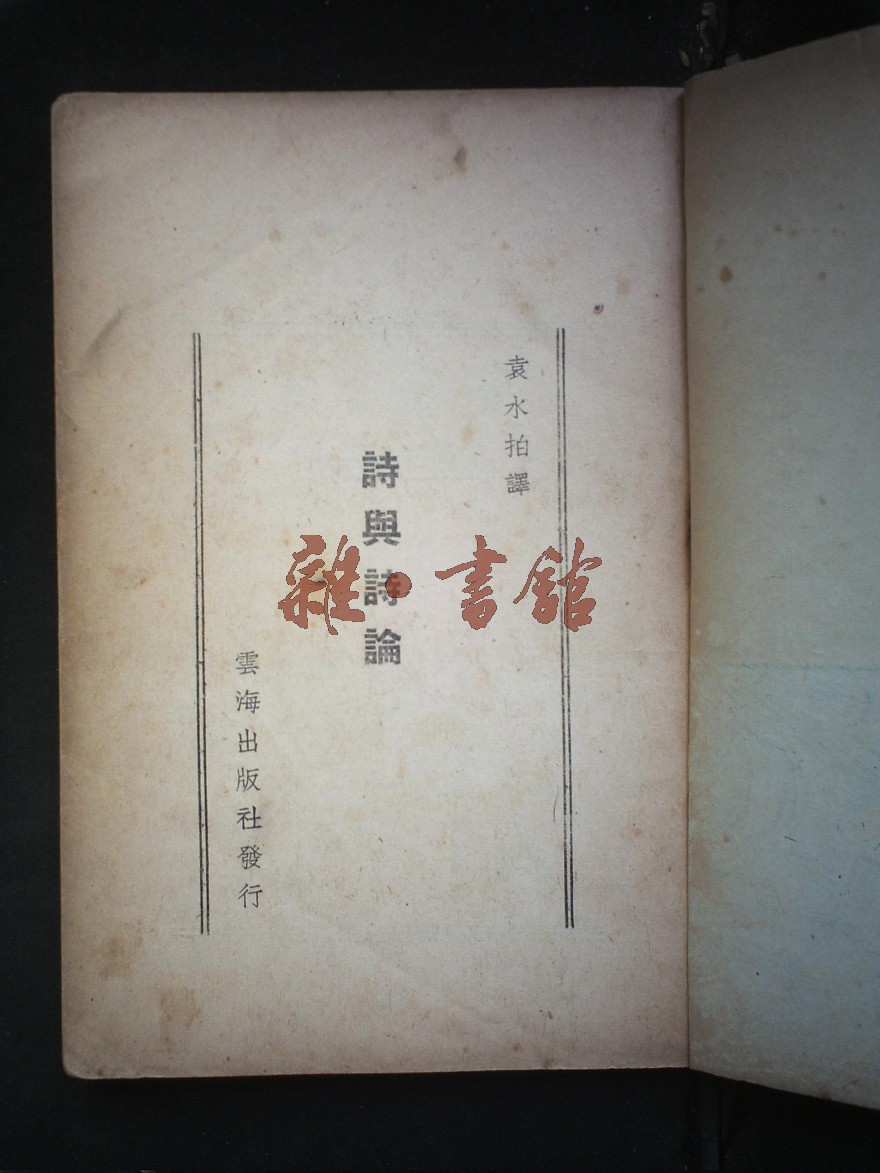 袁水拍譯
詩與詩論
雲海出版社發行
雜·書館